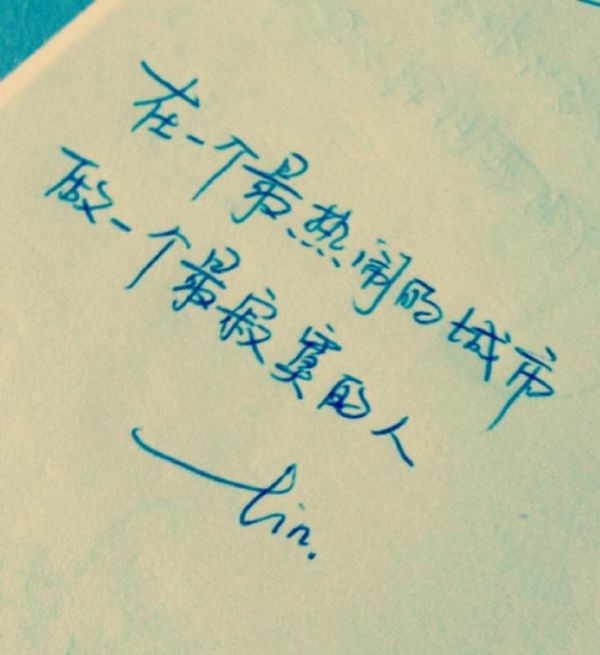 在一个最热闹的城市
做一个最寂寞的人
—lin.